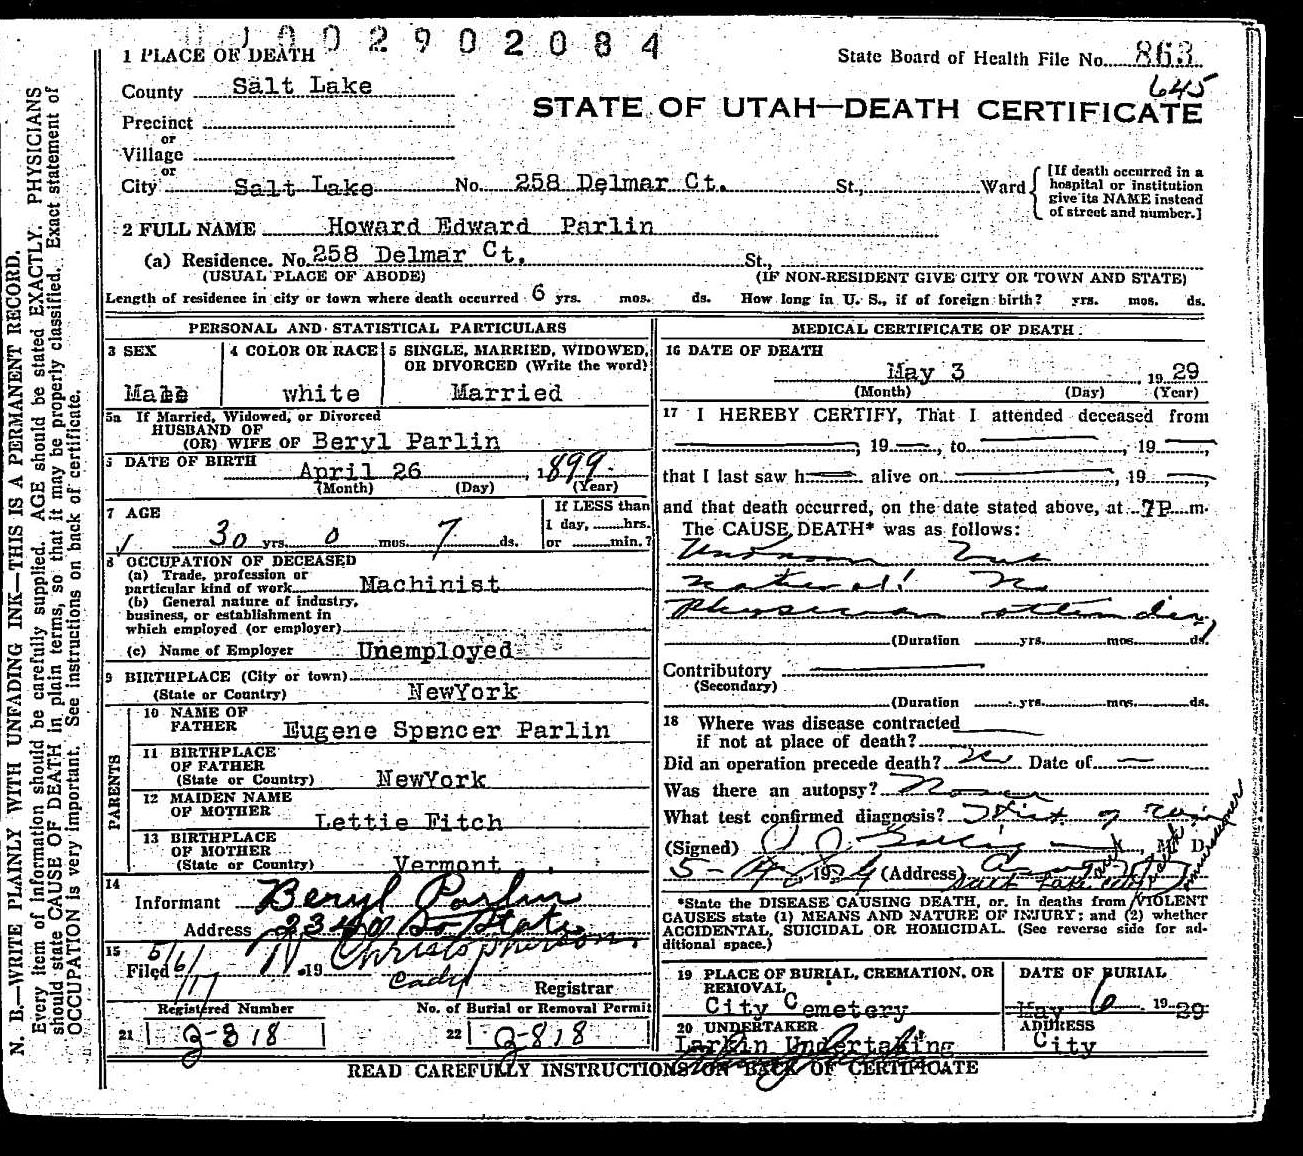 002902084
1 PLACE OF DEATH
State Board of Health File No. 863
645
County Salt Lake
STATE OF UTAH—DEATH CERTIFICATE
Precinct
or
Village
or
City Salt Lake No. 258 Delmar Ct. St., Ward
[If death occurred in a
hospital or institution
give its NAME instead
of street and number.]
2 FULL NAME Howard Edward Parlin
(a) Residence. No. 258 Delmar Ct. St.,
(USUAL PLACE OF ABODE) (IF NON-RESIDENT GIVE CITY OR TOWN AND STATE)
Length of residence in city or town where death occurred 6 yrs. mos. ds. How long in U. S., if of foreign birth? yrs. mos. ds.
PERSONAL AND STATISTICAL PARTICULARS
3 SEX
Male
4 COLOR OR RACE
white
5 SINGLE, MARRIED, WIDOWED,
OR DIVORCED (Write the word)
Married
5a If Married, Widowed, or Divorced
HUSBAND OF
(OR) WIFE OF Beryl Parlin
DATE OF BIRTH
April 26, 1899
(Month) (Day) (Year)
7 AGE
30 yrs. 0 mos. 7 ds.
If LESS than
1 day, hrs.
or min.?
8 OCCUPATION OF DECEASED
(a) Trade, profession or
particular kind of work Machinist
(b) General nature of industry,
business, or establishment in
which employed (or employer)
(c) Name of Employer Unemployed
9 BIRTHPLACE (City or town)
(State or Country) NewYork
PARENTS
10 NAME OF
FATHER Eugene Spencer Parlin
11 BIRTHPLACE
OF FATHER
(State or Country) NewYork
12 MAIDEN NAME
OF MOTHER Lettie Fitch
13 BIRTHPLACE
OF MOTHER
(State or Country) Vermont
14
Informant Beryl Parlin
Address So State
15
Filed 5/6 19 Christopherson
Registrar
Registered Number No. of Burial or Removal Permit
21 Q-818 22 Q-818
MEDICAL CERTIFICATE OF DEATH
16 DATE OF DEATH
May 3, 1929
(Month) (Day) (Year)
17 I HEREBY CERTIFY, That I attended deceased from
, 19 , to , 19
that I last saw h alive on , 19
and that death occurred, on the date stated above, at 7P m.
The CAUSE DEATH* was as follows:
Unknown but
natural! No
physician attending
(Duration yrs. mos. ds.
Contributory
(Secondary)
(Duration yrs. mos. ds.
18 Where was disease contracted
if not at place of death?
Did an operation precede death? No Date of —
Was there an autopsy? None
What test confirmed diagnosis?
(Signed) , M D.
(Address)
Salt Lake City
*State the DISEASE CAUSING DEATH, or, in deaths from VIOLENT
CAUSES state (1) MEANS AND NATURE OF INJURY; and (2) whether
ACCIDENTAL, SUICIDAL OR HOMICIDAL. (See reverse side for ad-
ditional space.)
19 PLACE OF BURIAL, CREMATION, OR
REMOVAL
City Cemetery
DATE OF BURIAL
May 6 1929
20 UNDERTAKER
Larkin Undertaking
ADDRESS
City
READ CAREFULLY INSTRUCTIONS ON BACK OF CERTIFICATE
N. B.—WRITE PLAINLY WITH UNFADING INK—THIS IS A PERMANENT RECORD.
Every item of information should be carefully supplied. AGE should be stated EXACTLY. PHYSICIANS
should state CAUSE OF DEATH in plain terms, so that it may be properly classified. Exact statement of
OCCUPATION is very important. See instructions on back of certificate.